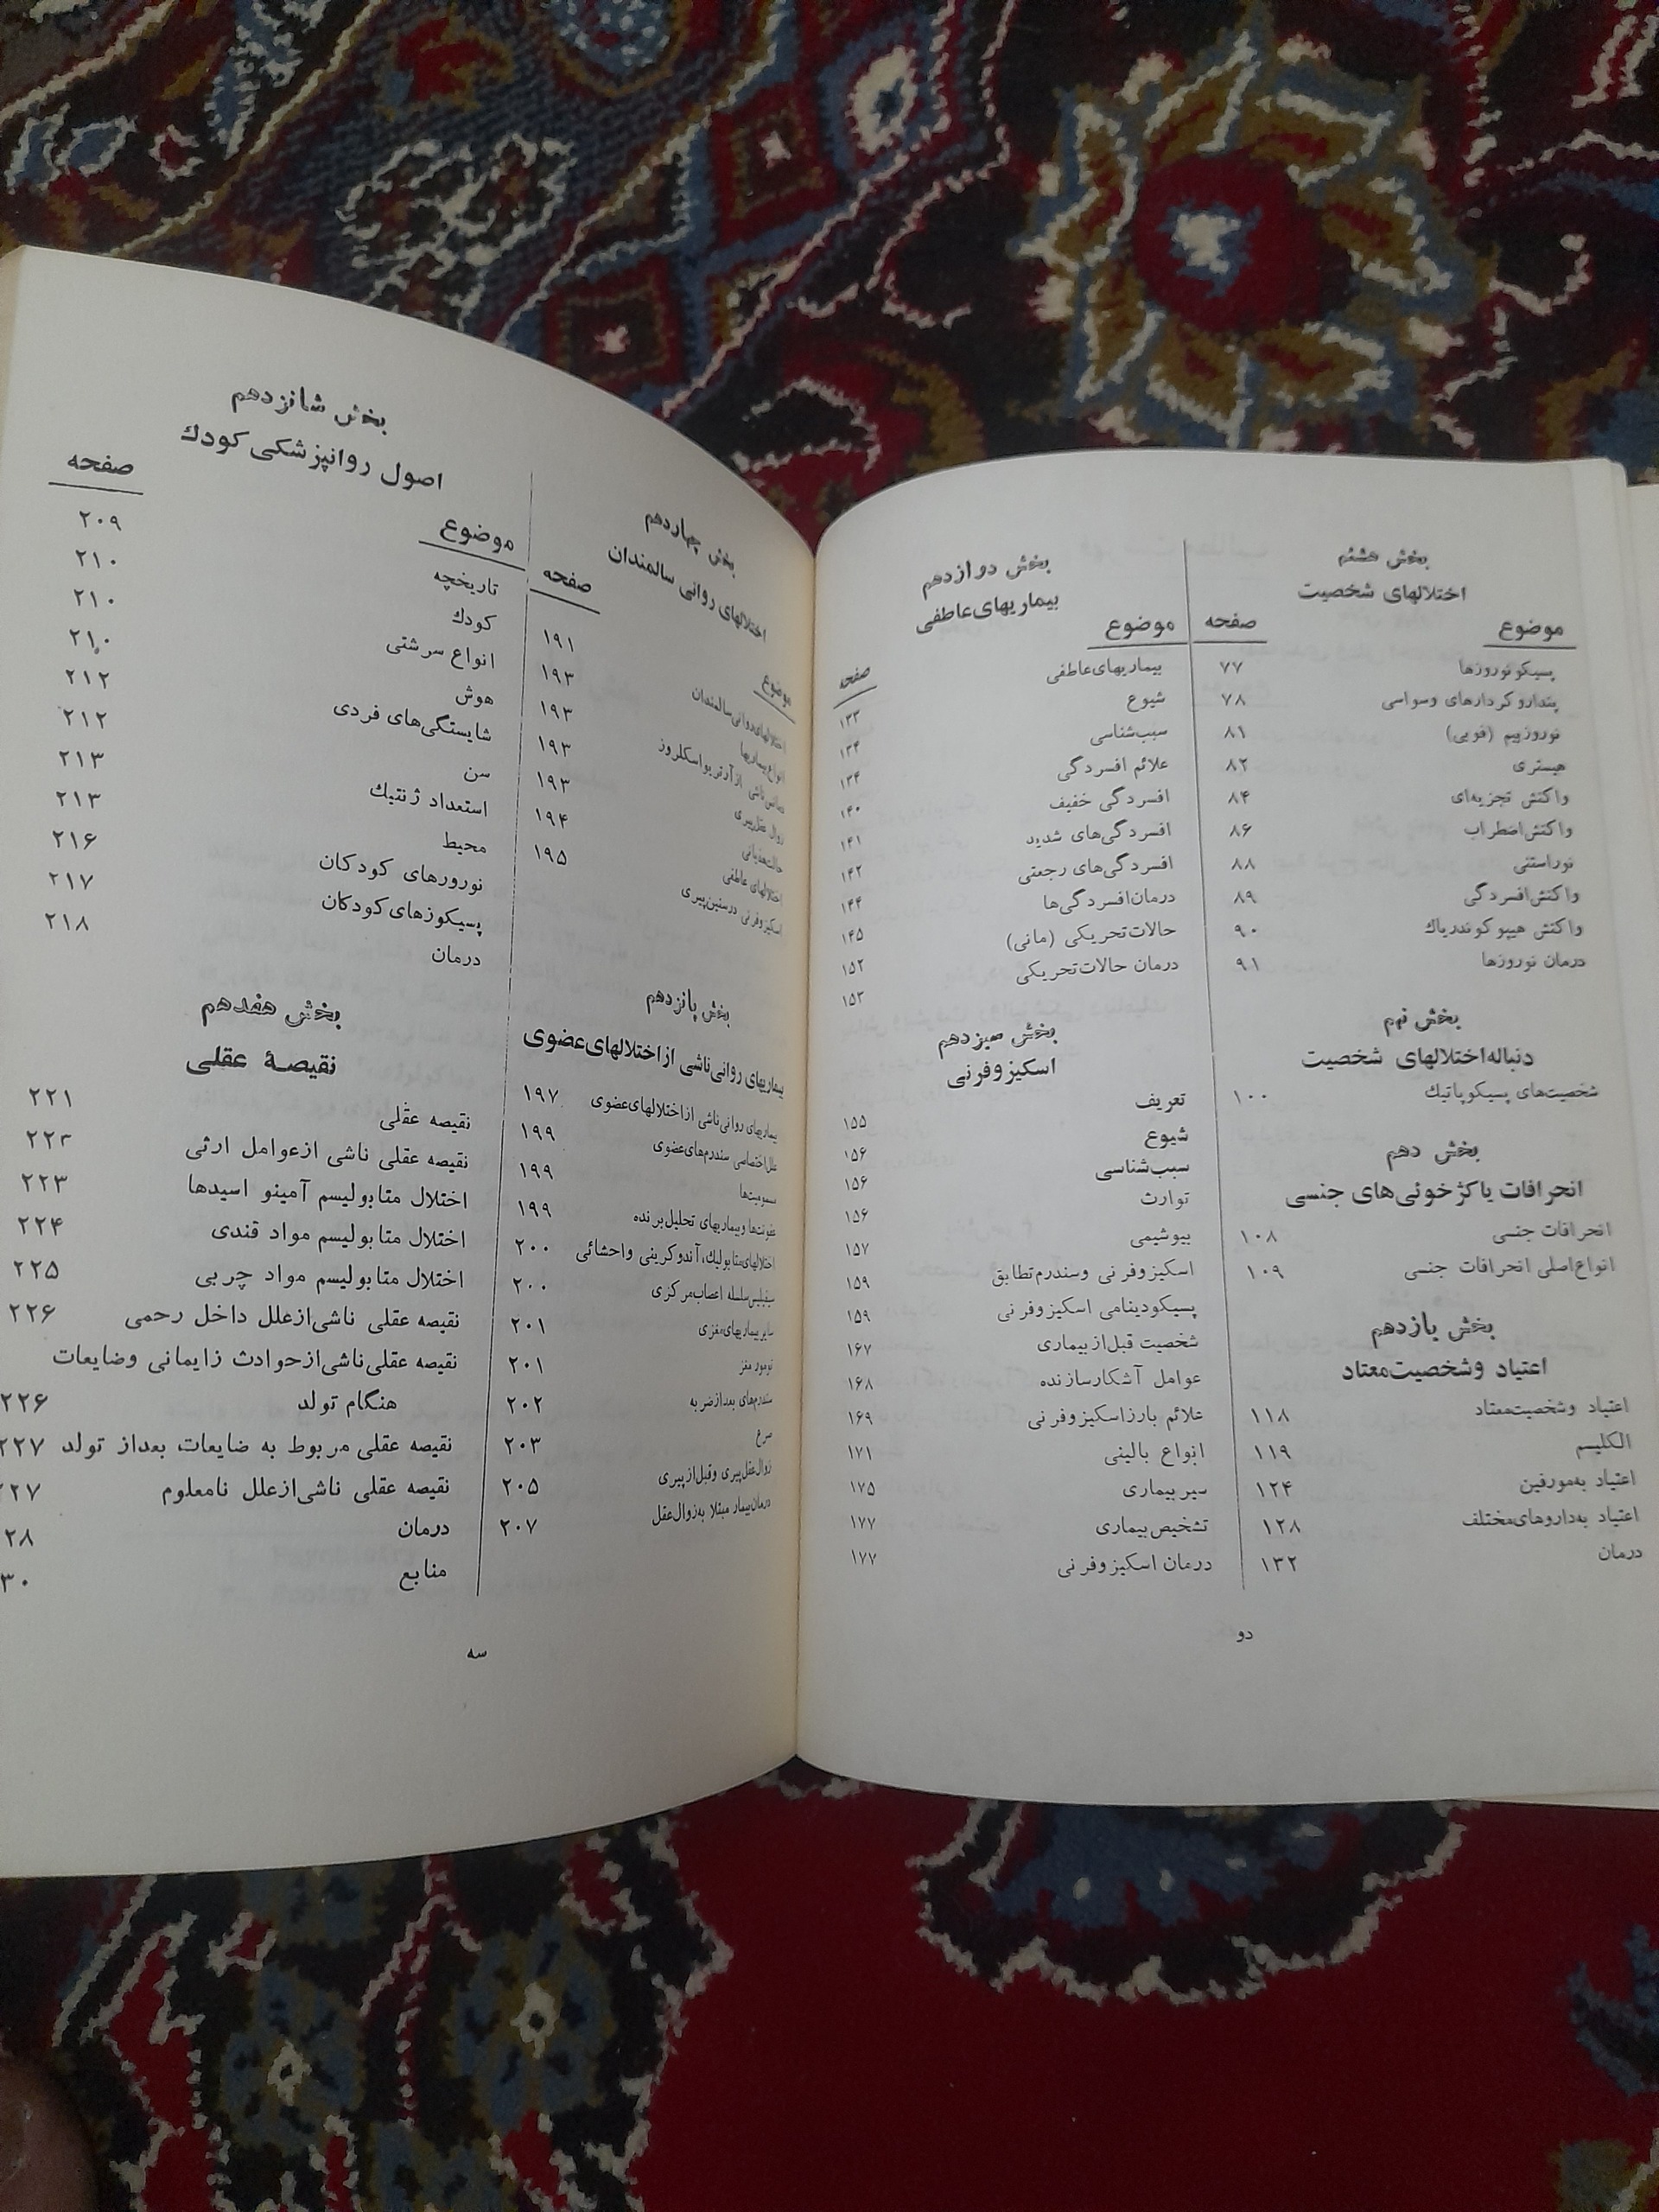 بخش هشتم
اختلالهای شخصیت
موضوع صفحه
پسیکونوروزها ۷۷
پندارو کردارهای وسواسی ۷۸
نوروزبیم (فوبی) ۸۱
هیستری ۸۲
واکنش تجزیه‌ای ۸۴
واکنش‌اضطراب ۸۶
نوراستنی ۸۸
واکنش‌افسردگی ۸۹
واکنش هیپوکوندریاك ۹۰
درمان نوروزها ۹۱
بخش نهم
دنباله‌اختلالهای شخصیت
شخصیت‌های پسیکوپاتیك ۱۰۰
بخش دهم
انحرافات یاکژخوئی‌های جنسی
انحرافات جنسی ۱۰۸
انواع‌اصلی انحرافات جنسی ۱۰۹
بخش یازدهم
اعتیاد وشخصیت‌معتاد
اعتیاد وشخصیت‌معتاد ۱۱۸
الکلیسم ۱۱۹
اعتیاد به‌مورفین ۱۲۴
اعتیاد به‌داروهای‌مختلف ۱۲۸
درمان ۱۳۲
بخش دوازدهم
بیماریهای‌عاطفی
موضوع صفحه
بیماریهای‌عاطفی ۱۳۳
شیوع ۱۳۴
سبب‌شناسی ۱۳۴
علائم افسردگی ۱۴۰
افسردگی خفیف ۱۴۱
افسردگی‌های شدید ۱۴۲
افسردگی‌های رجعتی ۱۴۴
درمان‌افسردگی‌ها ۱۴۵
حالات‌تحریکی (مانی) ۱۵۲
درمان حالات‌تحریکی ۱۵۳
بخش سیزدهم
اسکیزوفرنی
تعریف ۱۵۵
شیوع ۱۵۶
سبب‌شناسی ۱۵۶
توارث ۱۵۶
بیوشیمی ۱۵۷
اسکیزوفرنی وسندرم‌تطابق ۱۵۹
پسیکودینامی اسکیزوفرنی ۱۵۹
شخصیت قبل‌از بیماری ۱۶۷
عوامل آشکارسازنده ۱۶۸
علائم بارزاسکیزوفرنی ۱۶۹
انواع بالینی ۱۷۱
سیر بیماری ۱۷۵
تشخیص‌بیماری ۱۷۷
درمان اسکیزوفرنی ۱۷۷
دو
بخش چهاردهم
اختلالهای روانی سالمندان
موضوع صفحه
اختلالهای‌روانی‌سالمندان ۱۹۱
انواع‌بیماریها ۱۹۳
ناشی ازآرتریواسکلروز ۱۹۳
زوال عقل‌پیری ۱۹۳
حالت‌هذیانی ۱۹۳
اختلالهای عاطفی ۱۹۴
اسکیزوفرنی درسنین‌پیری ۱۹۵
بخش پانزدهم
بیماریهای روانی‌ناشی ازاختلالهای‌عضوی
بیماریهای روانی‌ناشی ازاختلالهای‌عضوی ۱۹۷
علل‌اختصاصی سندرم‌های‌عضوی ۱۹۹
مسمومیت‌ها ۱۹۹
عفونت‌ها وبیماریهای تحلیل‌برنده ۱۹۹
اختلالهای‌متابولیك،آندوکرینی واحشائی ۲۰۰
سیفیلیس‌سلسله اعصاب‌مرکزی ۲۰۰
سایربیماریهای‌مغزی ۲۰۱
تومور مغز ۲۰۱
سندرم‌های بعدازضربه ۲۰۲
صرع ۲۰۳
زوال‌عقل‌پیری وقبل‌ازپیری ۲۰۵
درمان‌بیمار مبتلا به‌زوال‌عقل ۲۰۷
بخش شانزدهم
اصول روانپزشکی کودك
موضوع صفحه
تاریخچه ۲۰۹
کودك ۲۱۰
انواع سرشتی ۲۱۰
هوش ۲۱۰
شایستگی‌های فردی ۲۱۲
سن ۲۱۲
استعداد ژنتیك ۲۱۳
محیط ۲۱۳
نورورهای کودکان ۲۱۶
پسیکوزهای کودکان ۲۱۷
درمان ۲۱۸
بخش هفدهم
نقیصهٔ عقلی
نقیصه عقلی ۲۲۱
نقیصه عقلی ناشی ازعوامل ارثی ۲۲۳
اختلال متابولیسم آمینو اسیدها ۲۲۳
اختلال متابولیسم مواد قندی ۲۲۴
اختلال متابولیسم مواد چربی ۲۲۵
نقیصه عقلی ناشی‌ازعلل داخل رحمی ۲۲۶
نقیصه عقلی‌ناشی‌ازحوادث زایمانی وضایعات
هنگام تولد ۲۲۶
نقیصه عقلی مربوط به ضایعات بعداز تولد ۲۲۷
نقیصه عقلی ناشی‌ازعلل نامعلوم ۲۷
درمان ۲۸
منابع ۳۰
سه